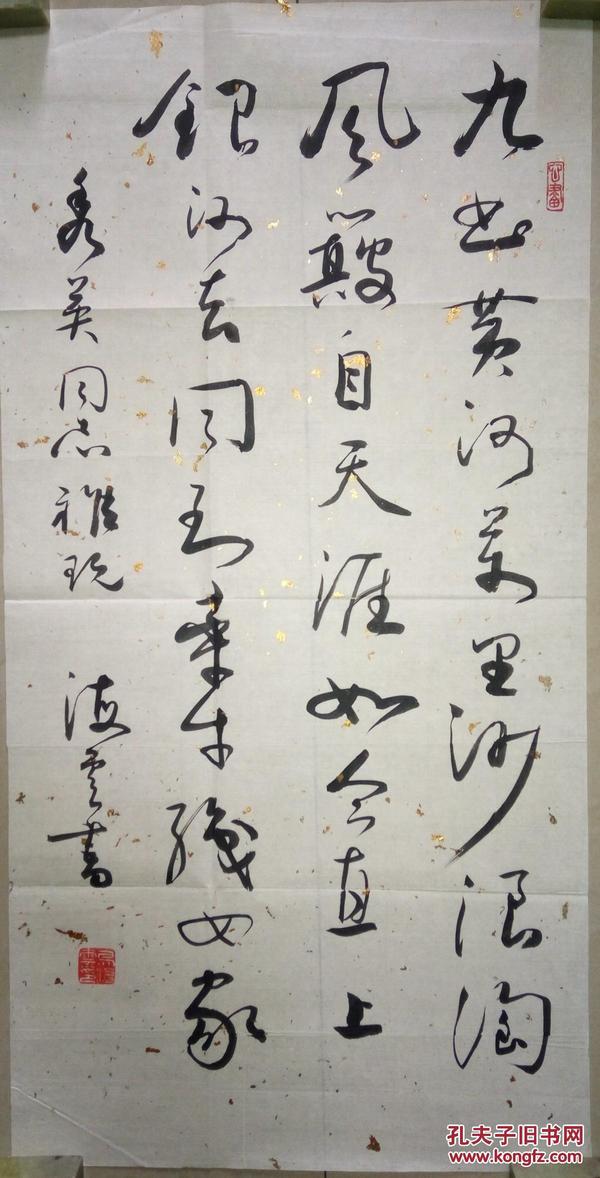 九曲黄河萬里沙浪淘
风簸自天涯如今直上
銀河去同到牽牛織女家
秀英同志雅玩 海雲書
孔夫子旧书网
www.kongfz.com